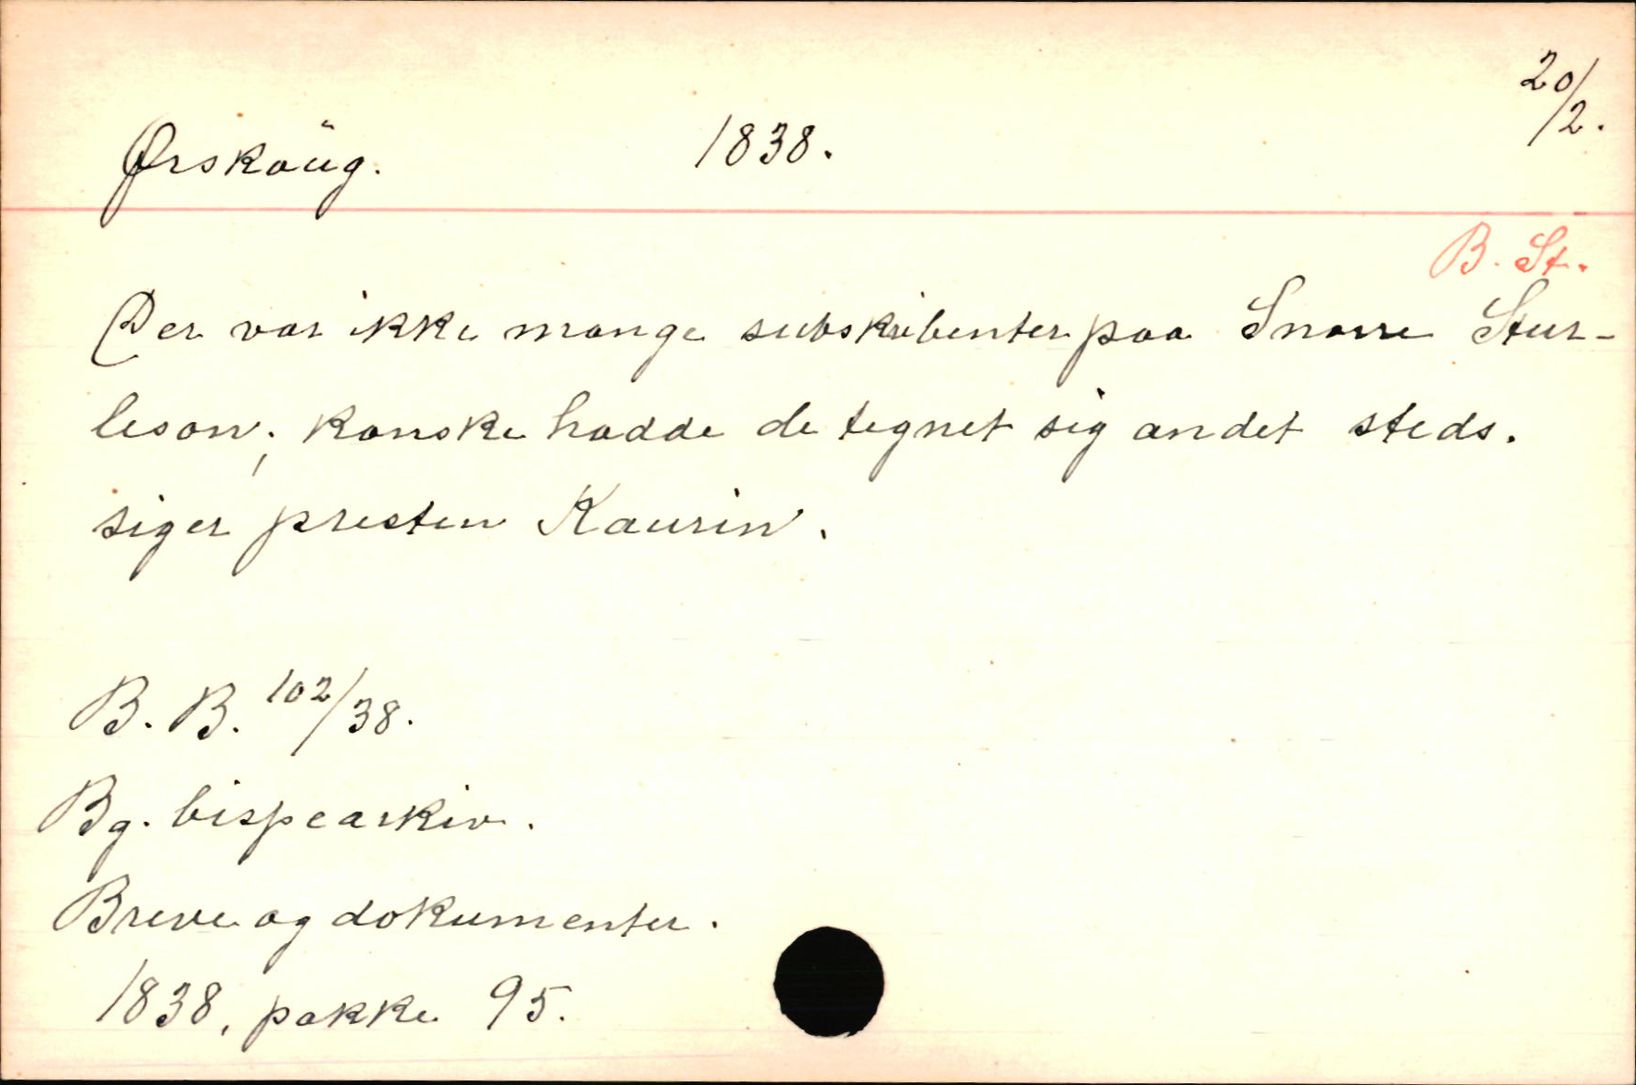 20/2.
Ørskoüg. 1838.
B. St.
Der var ikke mange subskribenter paa Snorre Stur-
leson; kanske hadde de tegnet sig andet steds.
siger presten Kaurin.
B. B. 102/38.
Bg. bispearkiv.
Breve og dokumenter.
1838, pakke 95.